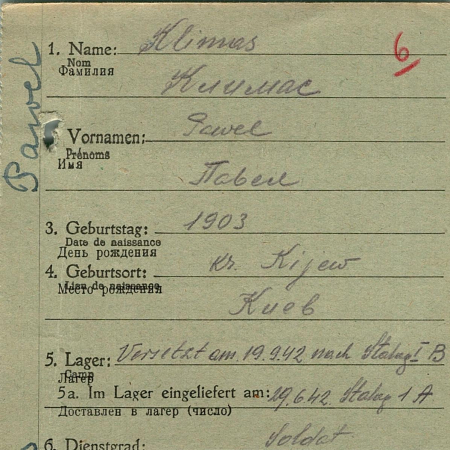 6
Pawel
1. Name: Klimas
Nom
Фамилия
Климас
Vornamen: Pawel
Prénoms
Имя
Павел
3. Geburtstag: 1903
Date de naissance
День рождения
4. Geburtsort: kr. Kijew
Lieu de naissance
Место рождения
Киев
5. Lager: Versetzt am 19.9.42 nach Stalag I B
Camp
Лагерь
5a. Im Lager eingeliefert am: 19.6.42 Stalag 1 A
Доставлен в лагерь (число)
6. Dienstgrad: Soldat